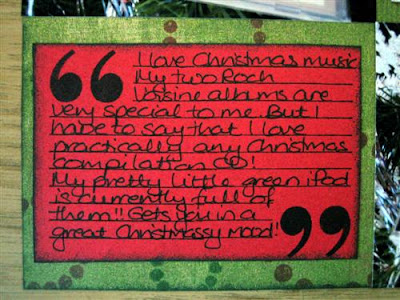 I love Christmas music
My two Roch
Voisine albums are
very special to me. But I
have to say that I love
practically any Christmas
compilation CD!
My pretty little green iPod
is currently full of
them!! Gets you in a
great Christmassy Mood!